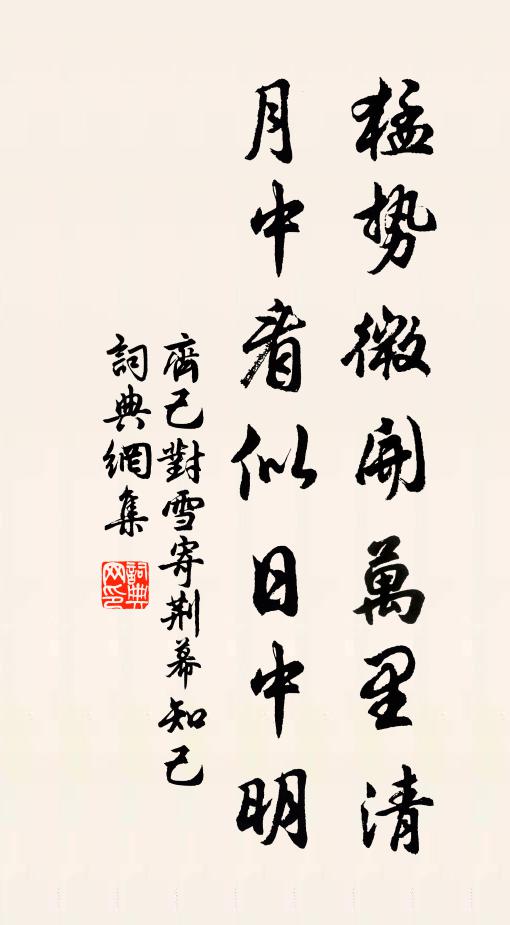 猛势微開萬里清
月中看似日中明
齊己對雪寄荆幕知己
詞典網集
詞典网印